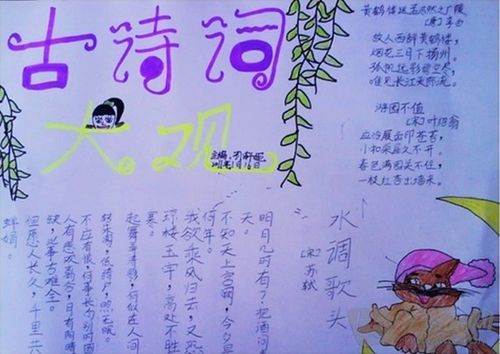 古诗词
大观
主编:
黄鹤楼送孟浩然之广陵
[唐]李白
故人西辞黄鹤楼,
烟花三月下扬州。
孤帆远影碧空尽,
唯见长江天际流。
游园不值
[宋]叶绍翁
应怜屐齿印苍苔,
小扣柴扉久不开。
春色满园关不住,
一枝红杏出墙来。
水调歌头
[宋]苏轼
明月几时有?把酒问青
天。
不知天上宫阙,今夕是
何年。
我欲乘风归去,又恐
琼楼玉宇,高处不胜
寒。
起舞弄清影,何似在人间
转朱阁,低绮户,照无眠。
不应有恨,何事长向别时圆
人有悲欢离合,月有阴晴圆
缺,此事古难全。
但愿人长久,千里共
婵娟。